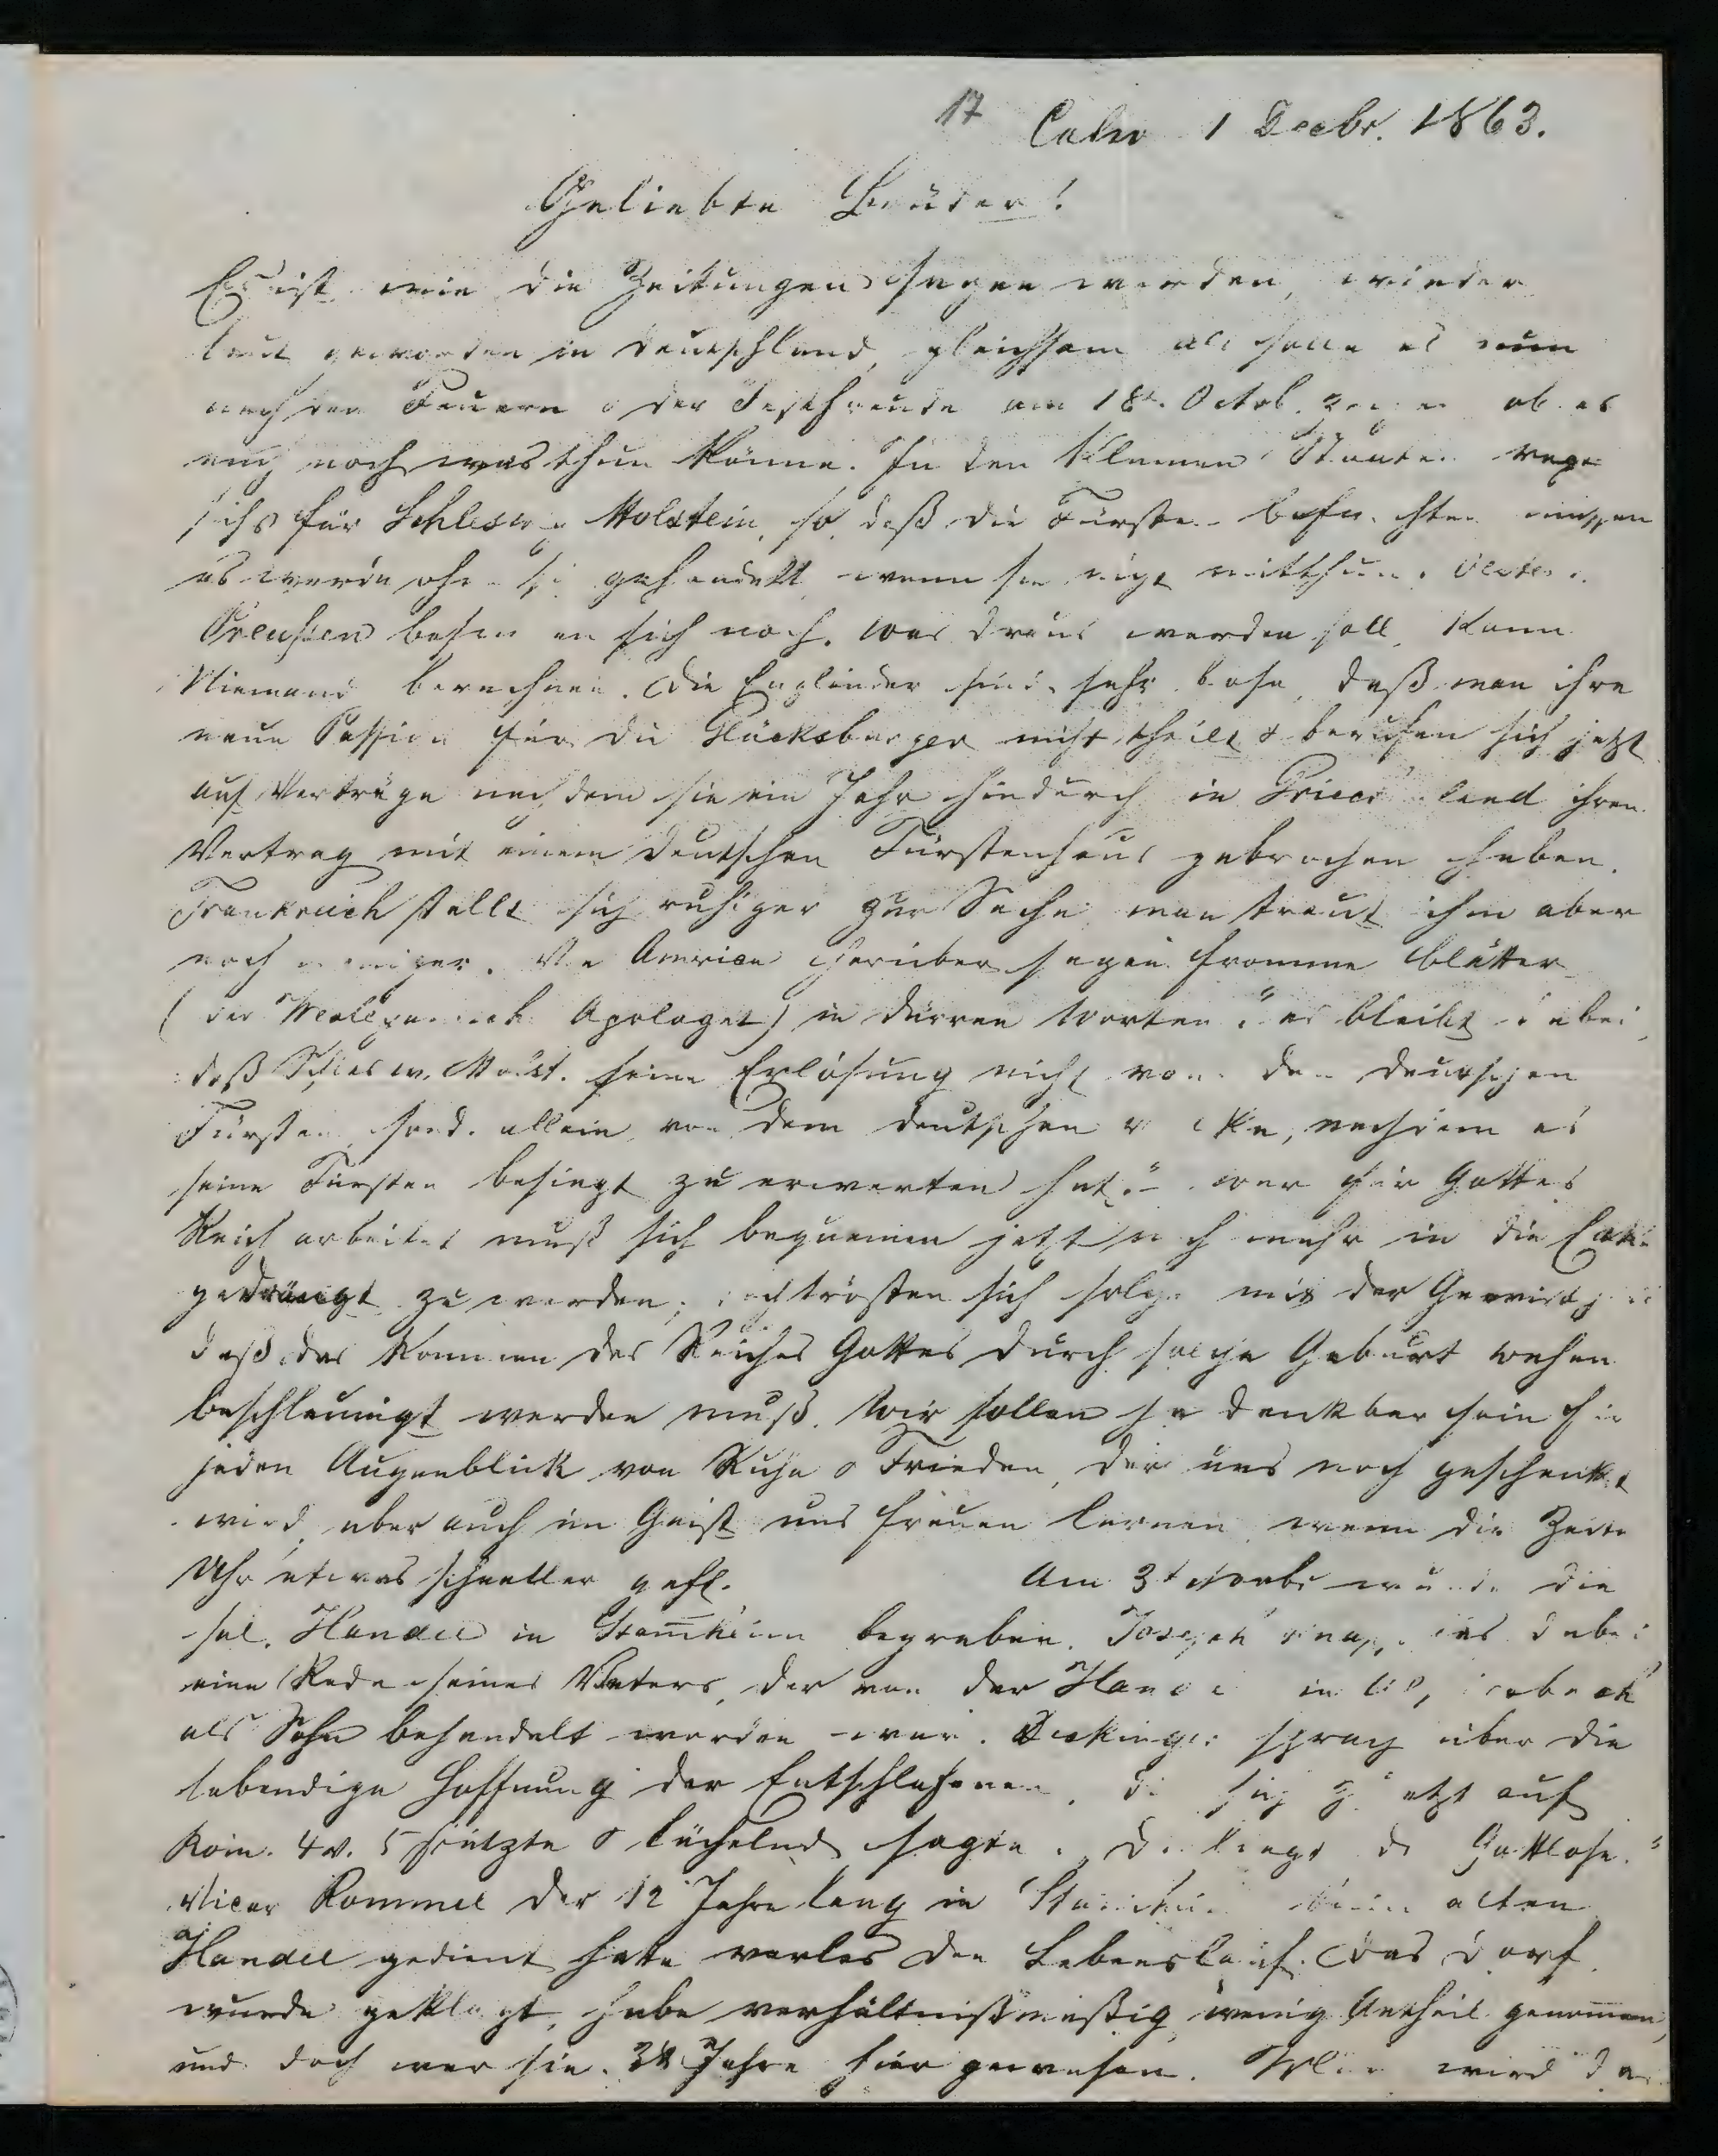 17 Calw 1 Decbr. 1863.
Geliebte Brüder!
Es ist, wie die Zeitungen sagen werden, wieder
laut geworden in Deutschland, gleichsam als solle es nun
nach den Feuern & der Festfreude am 18t. Octob. zeigen ob es
auch noch was thun könne. In den kleinen Staaten regt
sichs für Schlesw. Holstein, so daß die Fürsten befürchten müssen
es werde ohne sie gehandelt, wenn sie nicht mitthun.
Preußen besinnen sich noch. Was draus werden soll, kann
Niemand berechnen. Die Engländer sind sehr böse, daß man ihre
neue Passion für die Glücksburger nicht theilt & berufen sich jetzt
auf Verträge nachdem sie ein Jahr hindurch in Griechenland ihren
Vertrag mit einem deutschen Fürstenhaus gebrochen haben.
Frankreich stellt sich ruhiger zur Sache, man traut ihm aber
noch weniger. Von America herüber sagen fromme Blätter
(der Apologet) in dürren Worten: "es bleibt dabei,
daß Schlesw. Holst. seine Erlösung nicht von den deutschen
Fürsten, sond. allein von dem deutschen Volke, nachdem es
seine Fürsten besiegt zu erwarten hat." Wer für Gottes
Reich arbeitet muß sich bequemen jetzt noch mehr in die Ecke
gedrängt zu werden; doch trösten sich solche mit der Gewißheit
daß das Kommen des Reiches Gottes durch solche Geburtswehen
beschleunigt werden muß. Wir sollen ja dankbar sein für
jeden Augenblick von Ruhe & Frieden, der uns noch geschenkt
wird, aber auch im Geist uns freuen lernen, wenn die Zeiten
Uhr etwas schneller geht. Am 3t Novbr wurde die
sel. Handel in Stammheim begraben. Joseph Knapp las dabei
eine Rede seines Vaters, der von der Handel in
als Sohn behandelt worden war. Deckinger sprach über die
lebendige Hoffnung der Entschlafenen, die sich zuletzt auf
Röm. 4 v. 5 stützte & lächelnd sagte: "Da liegt die Gottlose."
Vicar Rommel der 12 Jahre lang in Stammheim dem alten
Handel gedient hatte verlas den Lebenslauf. Das Dorf
wurde geklagt, habe verhältnißmäßig wenig Antheil genommen,
und doch war sie Jahre hier gewesen. wird